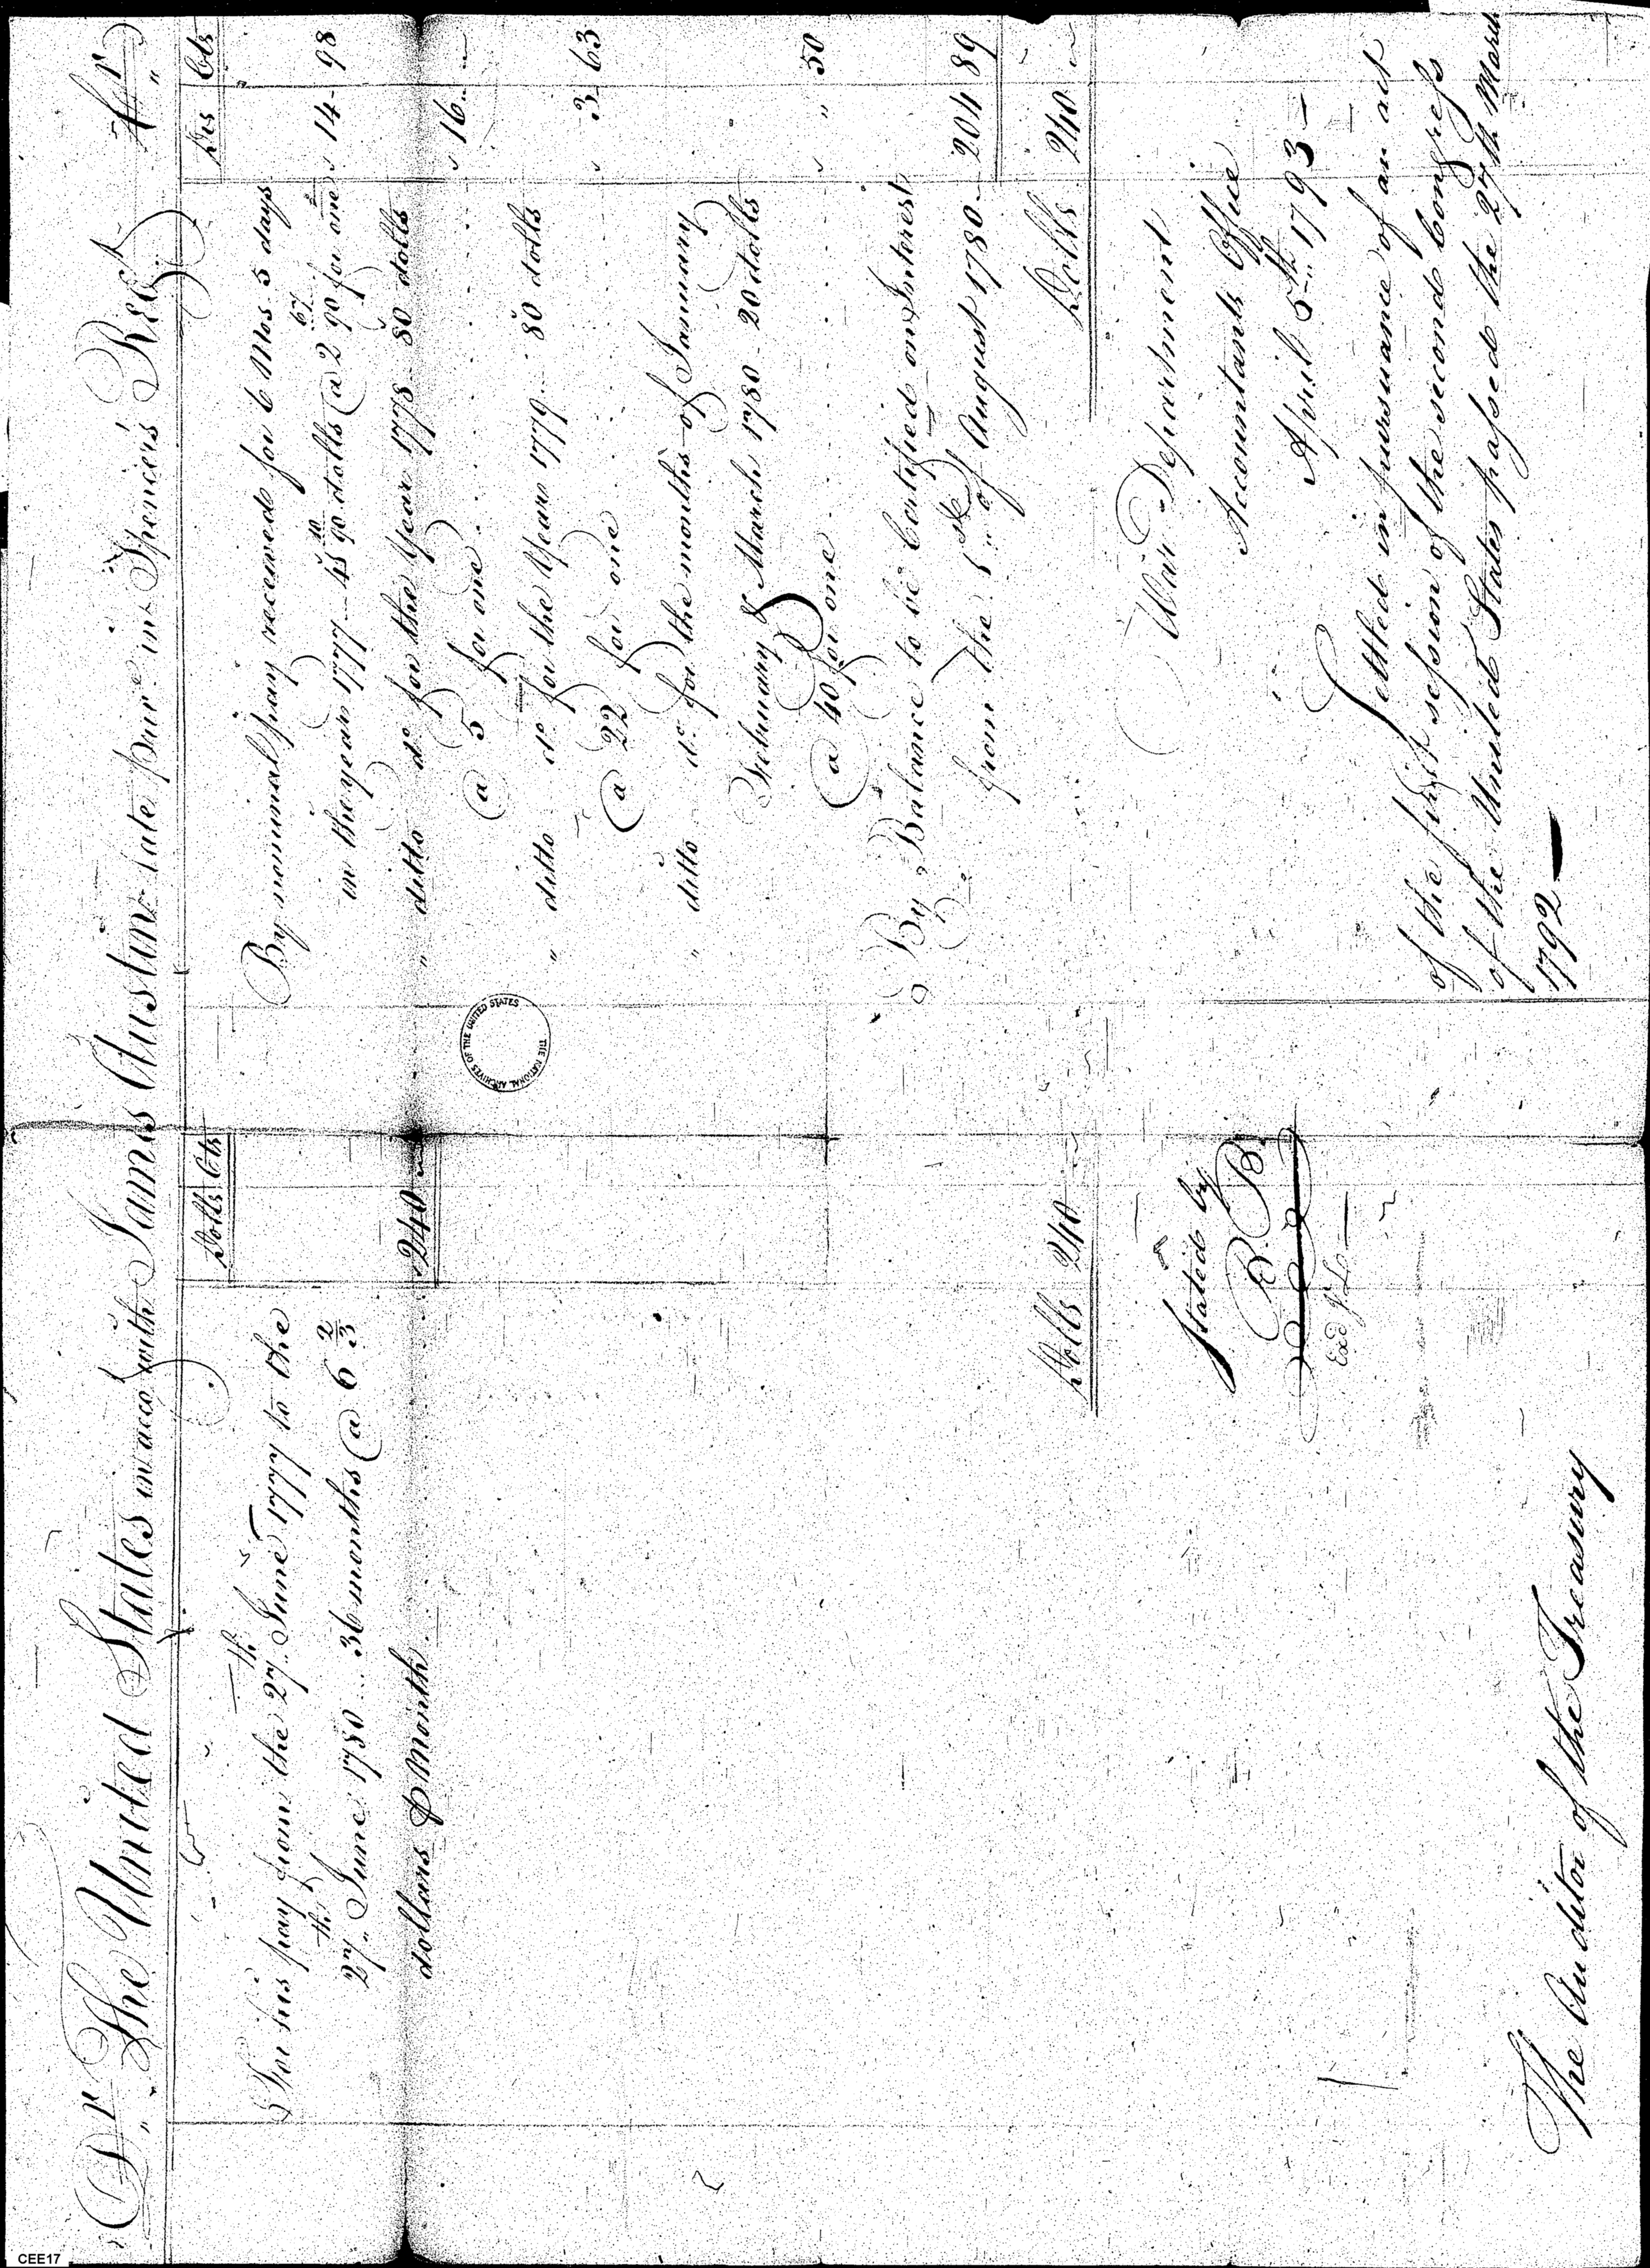 Dr The United States in acco with James Austin late priv.e in Spencers Reg.t Cr
Dolls Cts
For his pay from the 27th June 1777 to the
27th June 1780 .. 36 months @ 6 2/3
dollars ⅌ Month 240 "
Dolls 240 "
Stated by
R. B.
Exd J. L.
The Auditor of the Treasury
Drs Cts
By nominal pay received for 6 Mos 5 days
in the year 1777 - 45 10/90 dolls @ 2 67/90 for one 14 98
" ditto do for the Year 1778 - 80 dolls
@ 5 for one 16 "
" ditto do for the Year 1779 - 80 dolls
@ 22 for one 3 63
" ditto do for the months of January
February & March 1780 - 20 dolls
@ 40 for one " 50
By Balance to be Certified on Interest
from the 5th of August 1780 204 89
Dolls 240 "
War Department
Accountants Office
April 5th 1793
Settled in pursuance of an act
of the first session of the second Congress
of the United States passed the 27th March
1792
THE NATIONAL ARCHIVES OF THE UNITED STATES
CEE17